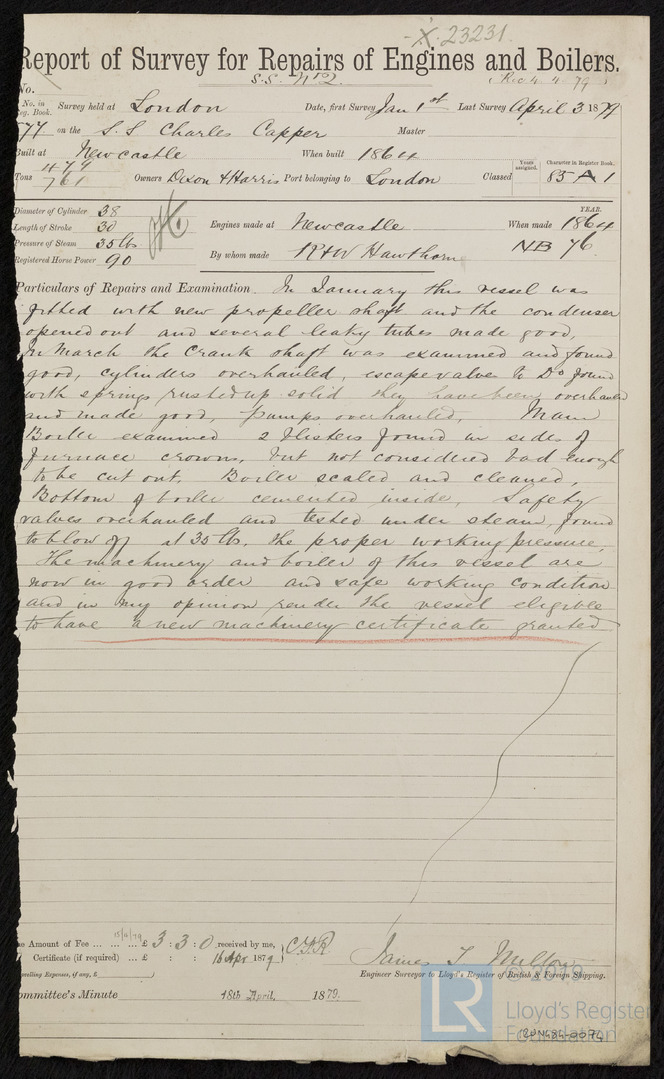 X. 23231.
Report of Survey for Repairs of Engines and Boilers.
S.S. No 2. (Rec 4.4.79)
No.
No. in Reg. Book. Survey held at London Date, first Survey Jan 1st Last Survey April 3 1879
77 on the S.S Charles Capper Master
Built at Newcastle When built 1864 Years assigned. Character in Register Book.
Tons 479 761 Owners Dixon & Harris Port belonging to London Classed 83 A 1
Diameter of Cylinder 38
Length of Stroke 30
Pressure of Steam 35 lbs
Registered Horse Power 90
Engines made at Newcastle When made YEAR. 1864
By whom made R & W Hawthorne NB 76
Particulars of Repairs and Examination In January this vessel was
fitted with new propeller shaft and the condenser
opened out and several leaky tubes made good,
In March the Crank shaft was examined and found
good, cylinders overhauled, escape valve to Do found
with springs rusted up solid they have been overhauled
and made good, pumps overhauled, Main
Boiler examined 2 blisters found in sides of
furnace crowns, but not considered bad enough
to be cut out, Boiler scaled and cleaned,
Bottom of boiler cemented inside, Safety
valves overhauled and tested under steam, found
to blow off at 35 lbs, the proper working pressure,
The machinery and boiler of this vessel are
now in good order and safe working condition
and in my opinion render the vessel eligible
to have a new machinery certificate granted
15/4/79
Amount of Fee ... £ 3 : 3 : 0 received by me,
Certificate (if required) ... £ : : 16 Apr 1879
Travelling Expenses, if any, £
James T Milton
Engineer Surveyor to Lloyd's Register of British & Foreign Shipping.
Committee's Minute 18th April, 1879.
© 2019
LR
Lloyd's Register
Foundation
LON484-0074